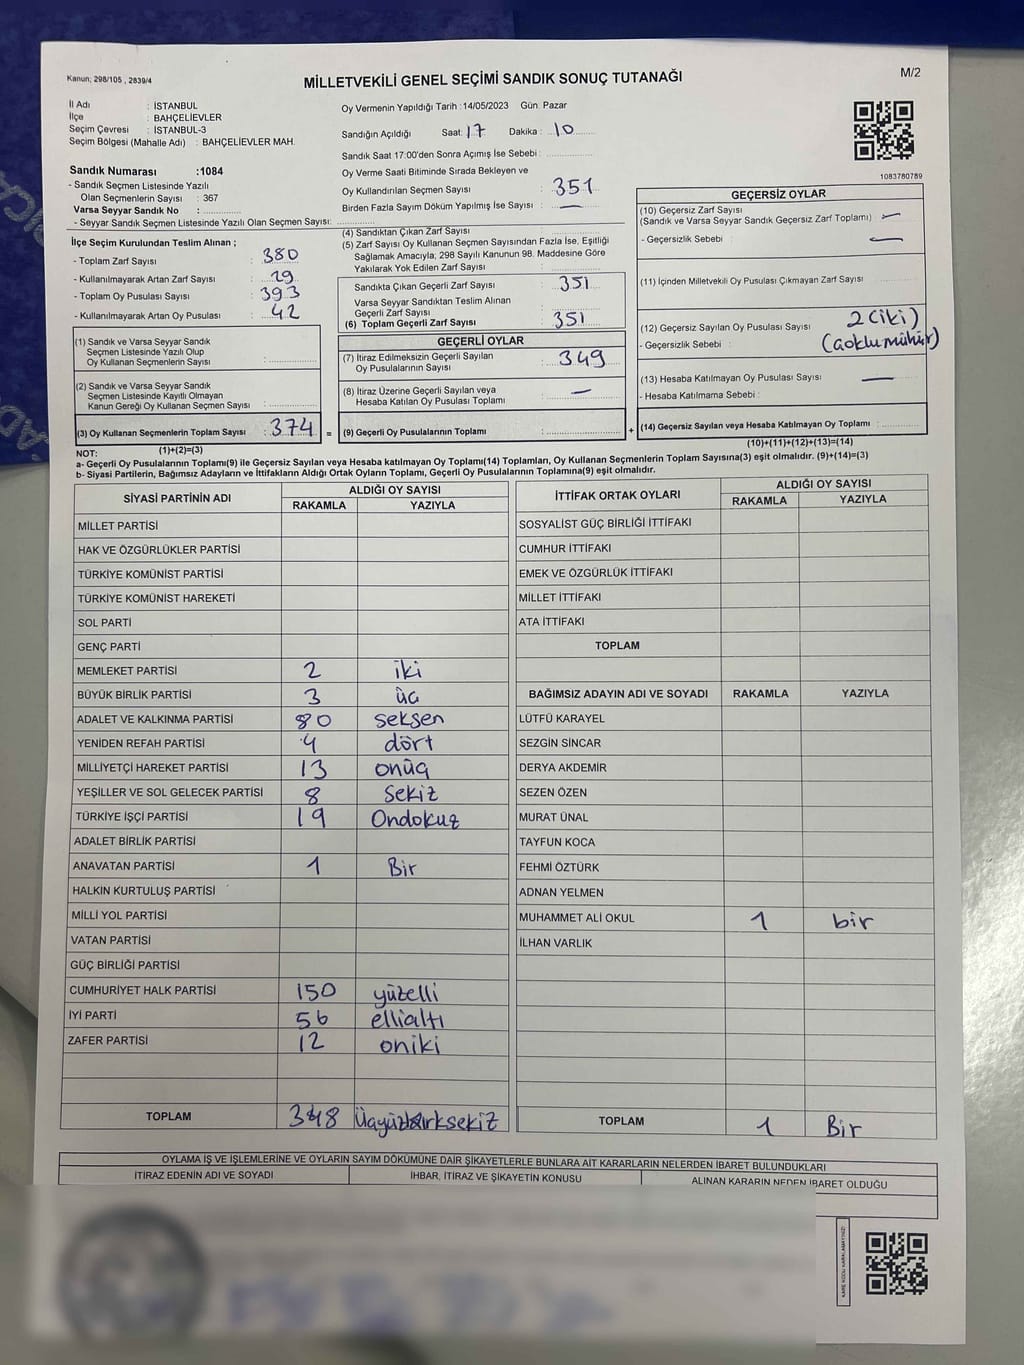 Kanun; 298/105 , 2839/4
MİLLETVEKİLİ GENEL SEÇİMİ SANDIK SONUÇ TUTANAĞI
M/2
İl Adı : İSTANBUL
İlçe : BAHÇELİEVLER
Seçim Çevresi : İSTANBUL-3
Seçim Bölgesi (Mahalle Adı) : BAHÇELİEVLER MAH.
Oy Vermenin Yapıldığı Tarih :14/05/2023 Gün: Pazar
Sandığın Açıldığı Saat: 17 Dakika : 10
Sandık Saat 17:00'den Sonra Açımış İse Sebebi :
Oy Verme Saati Bitiminde Sırada Bekleyen ve
Oy Kullandırılan Seçmen Sayısı : 351
Birden Fazla Sayım Döküm Yapılmış İse Sayısı : —
Sandık Numarası :1084
- Sandık Seçmen Listesinde Yazılı
Olan Seçmenlerin Sayısı : 367
Varsa Seyyar Sandık No :
- Seyyar Sandık Seçmen Listesinde Yazılı Olan Seçmen Sayısı:
İlçe Seçim Kurulundan Teslim Alınan ;
- Toplam Zarf Sayısı : 380
- Kullanılmayarak Artan Zarf Sayısı : 29
- Toplam Oy Pusulası Sayısı : 393
- Kullanılmayarak Artan Oy Pusulası : 42
(1) Sandık ve Varsa Seyyar Sandık
Seçmen Listesinde Yazılı Olup
Oy Kullanan Seçmenlerin Sayısı :
(2) Sandık ve Varsa Seyyar Sandık
Seçmen Listesinde Kayıtlı Olmayan
Kanun Gereği Oy Kullanan Seçmen Sayısı :
(3) Oy Kullanan Seçmenlerin Toplam Sayısı : 374 =
(1)+(2)=(3)
(4) Sandıktan Çıkan Zarf Sayısı :
(5) Zarf Sayısı Oy Kullanan Seçmen Sayısından Fazla İse, Eşitliği
Sağlamak Amacıyla; 298 Sayılı Kanunun 98. Maddesine Göre
Yakılarak Yok Edilen Zarf Sayısı :
Sandıkta Çıkan Geçerli Zarf Sayısı : 351
Varsa Seyyar Sandıktan Teslim Alınan
Geçerli Zarf Sayısı :
(6) Toplam Geçerli Zarf Sayısı : 351
GEÇERLİ OYLAR
(7) İtiraz Edilmeksizin Geçerli Sayılan
Oy Pusulalarının Sayısı : 349
(8) İtiraz Üzerine Geçerli Sayılan veya
Hesaba Katılan Oy Pusulası Toplamı : —
(9) Geçerli Oy Pusulalarının Toplamı : +
1083780789
GEÇERSİZ OYLAR
(10) Geçersiz Zarf Sayısı
(Sandık ve Varsa Seyyar Sandık Geçersiz Zarf Toplamı) : —
- Geçersizlik Sebebi : —
(11) İçinden Milletvekili Oy Pusulası Çıkmayan Zarf Sayısı :
(12) Geçersiz Sayılan Oy Pusulası Sayısı : 2 (iki)
- Geçersizlik Sebebi : (çoklu mühür)
(13) Hesaba Katılmayan Oy Pusulası Sayısı : —
- Hesaba Katılmama Sebebi :
(14) Geçersiz Sayılan veya Hesaba Katılmayan Oy Toplamı :
(10)+(11)+(12)+(13)=(14)
NOT:
a- Geçerli Oy Pusulalarının Toplamı(9) ile Geçersiz Sayılan veya Hesaba katılmayan Oy Toplamı(14) Toplamları, Oy Kullanan Seçmenlerin Toplam Sayısına(3) eşit olmalıdır. (9)+(14)=(3)
b- Siyasi Partilerin, Bağımsız Adayların ve İttifakların Aldığı Ortak Oyların Toplamı, Geçerli Oy Pusulalarının Toplamına(9) eşit olmalıdır.
SİYASİ PARTİNİN ADI ALDIĞI OY SAYISI
RAKAMLA YAZIYLA
MİLLET PARTİSİ
HAK VE ÖZGÜRLÜKLER PARTİSİ
TÜRKİYE KOMÜNİST PARTİSİ
TÜRKİYE KOMÜNİST HAREKETİ
SOL PARTİ
GENÇ PARTİ
MEMLEKET PARTİSİ 2 iki
BÜYÜK BİRLİK PARTİSİ 3 üç
ADALET VE KALKINMA PARTİSİ 80 seksen
YENİDEN REFAH PARTİSİ 4 dört
MİLLİYETÇİ HAREKET PARTİSİ 13 onüç
YEŞİLLER VE SOL GELECEK PARTİSİ 8 sekiz
TÜRKİYE İŞÇİ PARTİSİ 19 Ondokuz
ADALET BİRLİK PARTİSİ
ANAVATAN PARTİSİ 1 Bir
HALKIN KURTULUŞ PARTİSİ
MİLLİ YOL PARTİSİ
VATAN PARTİSİ
GÜÇ BİRLİĞİ PARTİSİ
CUMHURİYET HALK PARTİSİ 150 yüzelli
İYİ PARTİ 56 ellialtı
ZAFER PARTİSİ 12 oniki
TOPLAM 348 Üçyüzkırksekiz
İTTİFAK ORTAK OYLARI ALDIĞI OY SAYISI
RAKAMLA YAZIYLA
SOSYALİST GÜÇ BİRLİĞİ İTTİFAKI
CUMHUR İTTİFAKI
EMEK VE ÖZGÜRLÜK İTTİFAKI
MİLLET İTTİFAKI
ATA İTTİFAKI
TOPLAM
BAĞIMSIZ ADAYIN ADI VE SOYADI RAKAMLA YAZIYLA
LÜTFÜ KARAYEL
SEZGİN SİNCAR
DERYA AKDEMİR
SEZEN ÖZEN
MURAT ÜNAL
TAYFUN KOCA
FEHMİ ÖZTÜRK
ADNAN YELMEN
MUHAMMET ALİ OKUL 1 bir
İLHAN VARLIK
TOPLAM 1 Bir
OYLAMA İŞ VE İŞLEMLERİNE VE OYLARIN SAYIM DÖKÜMÜNE DAİR ŞİKAYETLERLE BUNLARA AİT KARARLARIN NELERDEN İBARET BULUNDUKLARI
İTİRAZ EDENİN ADI VE SOYADI İHBAR, İTİRAZ VE ŞİKAYETİN KONUSU ALINAN KARARIN NEDEN İBARET OLDUĞU